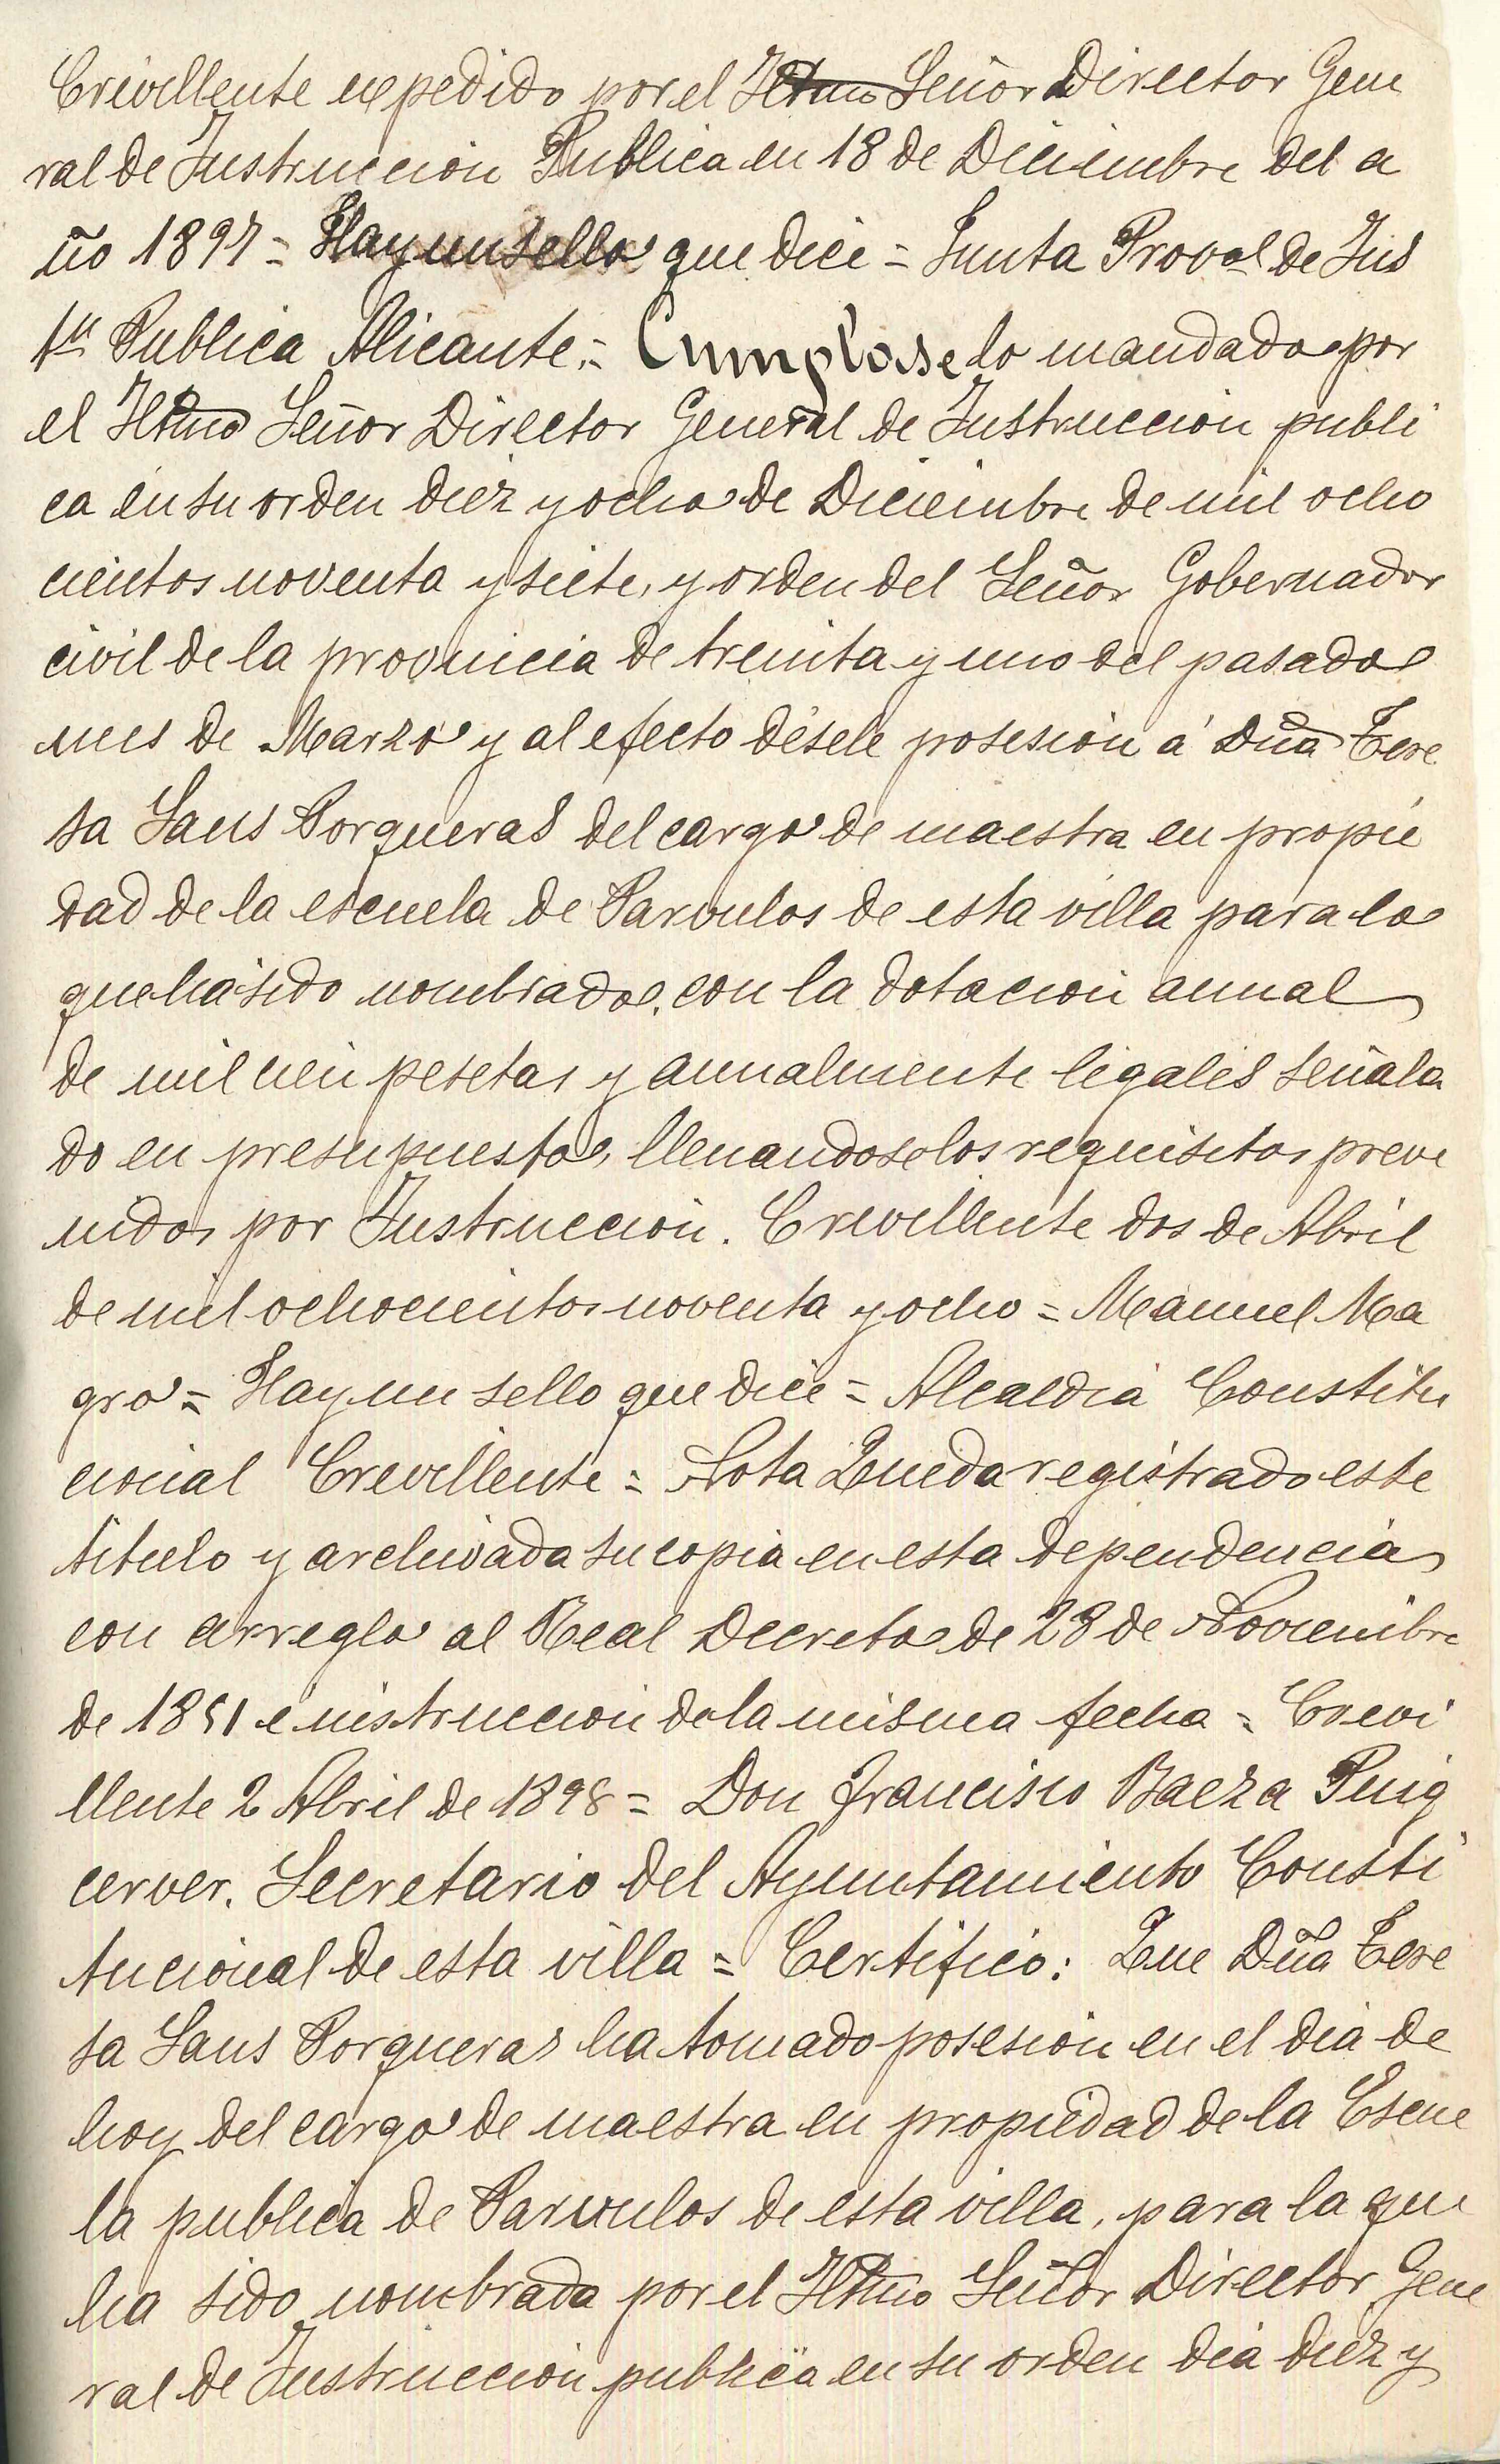 Crevillente expedido por el Iltmo Señor Director Gene
ral de Instruccion Publica en 18 de Diciembre del a
ño 1897 = Hay un sello que dice = Junta Proval de Ins
tn Publica Alicante = Cumplase lo mandado por
el Iltmo Señor Director General de Instruccion publi
ca en su orden diez y ocho de Diciembre de mil ocho
cientos noventa y siete, y orden del Señor Gobernador
civil de la provincia de treinta y uno del pasado
mes de Marzo y al efecto désele posesion á Dña Tere
sa Sans Porqueras del cargo de maestra en propie
dad de la escuela de Parvulos de esta villa para lo
que há sido nombrado, con la dotacion anual
de mil cien pesetas y anualmente legales señala
do en presupuesto, llenandose los requisitos preve
nidos por Instruccion. Crevillente dos de Abril
de mil ochocientos noventa y ocho = Manuel Ma
gro = Hay un sello que dice = Alcaldia Constitu
cional Crevillente = Nota Queda registrado este
titulo y archivada su copia en esta dependencia
con arreglo al Real Decreto de 28 de Noviembre
de 1851 é instruccion de la misma fecha = Crevi
llente 2 Abril de 1898 = Don Francisco Baeza Puig
cerver. Secretario del Ayuntamiento Consti
tucional de esta villa = Certifico: Que Dña Tere
sa Sans Porqueras ha tomado posesion en el dia de
hoy del cargo de maestra en propiedad de la Escue
la publica de Parvulos de esta villa, para la que
ha sido nombrada por el Iltmo Señor Director Gene
ral de Instruccion publica en su orden dia diez y